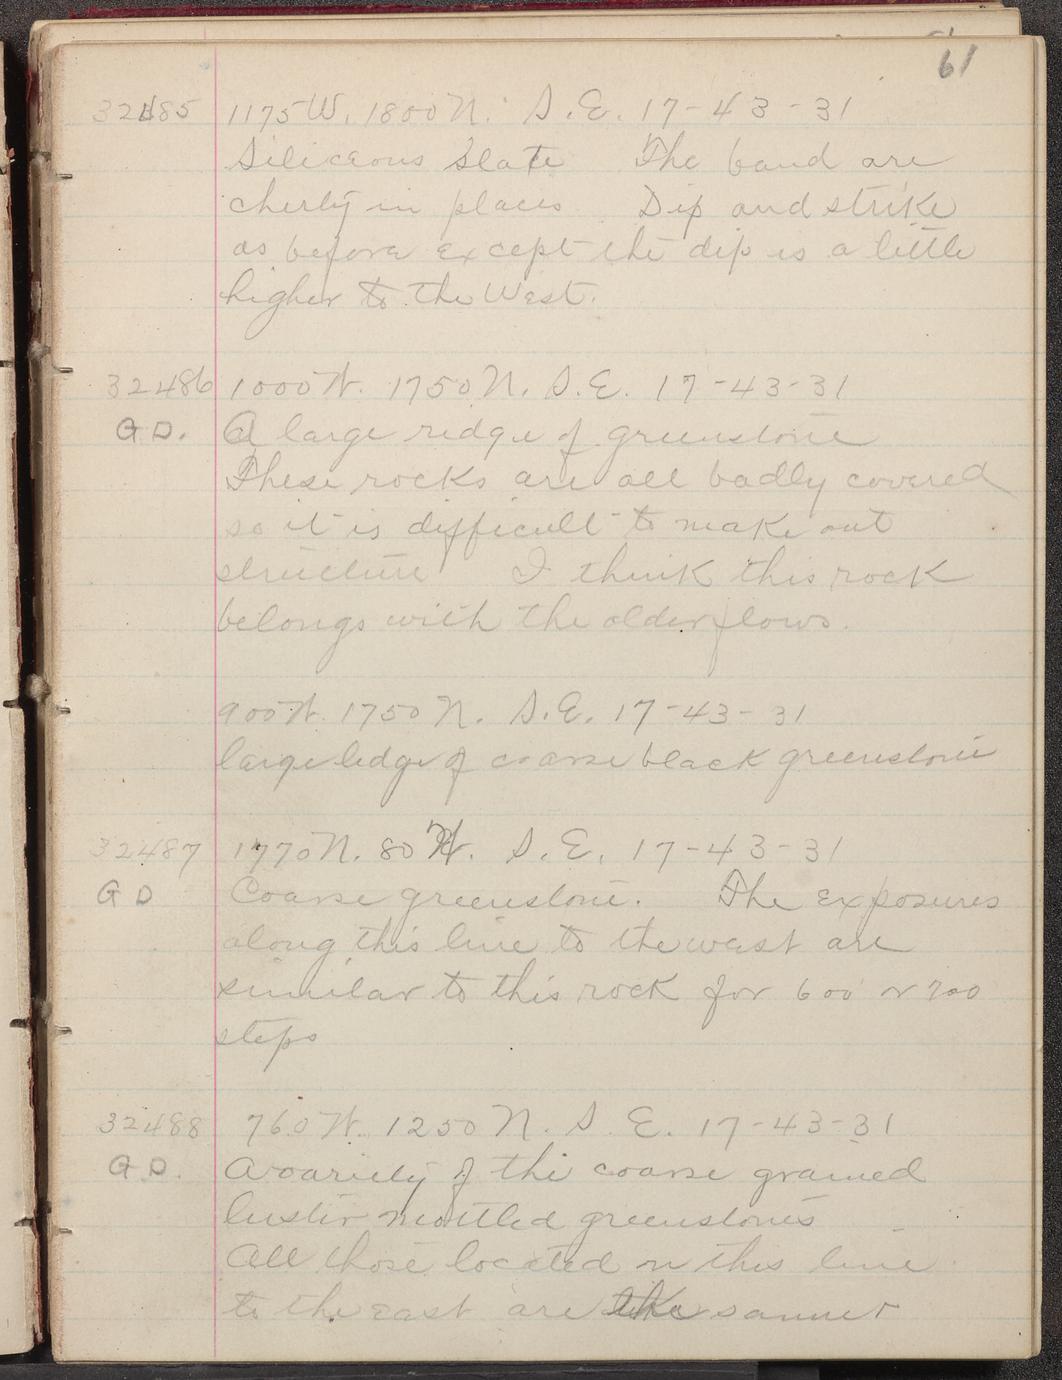 61
32485 1175 W. 1800 N. S.E. 17-43-31
Siliceous Slate The band are
cherty in places Dip and strike
as before except the dip is a little
higher to the West.
32486 1000 W. 1750 N. S.E. 17-43-31
G D. A large ridge of greenstone
These rocks are all badly covered
so it is difficult to make out
structure I think this rock
belongs with the older flows.
900 W. 1750 N. S.E. 17-43-31
large ledge of coarse black greenstone
32487 1770 N. 80 W. S.E. 17-43-31
G D Coarse greenstone. The exposures
along this line to the west are
similar to this rock for 600 or 700
steps
32488 760 W. 1250 N. S E. 17-43-31
G.D. A variety of the coarse grained
luster mottled greenstones
All those located on this line
to the east are the same